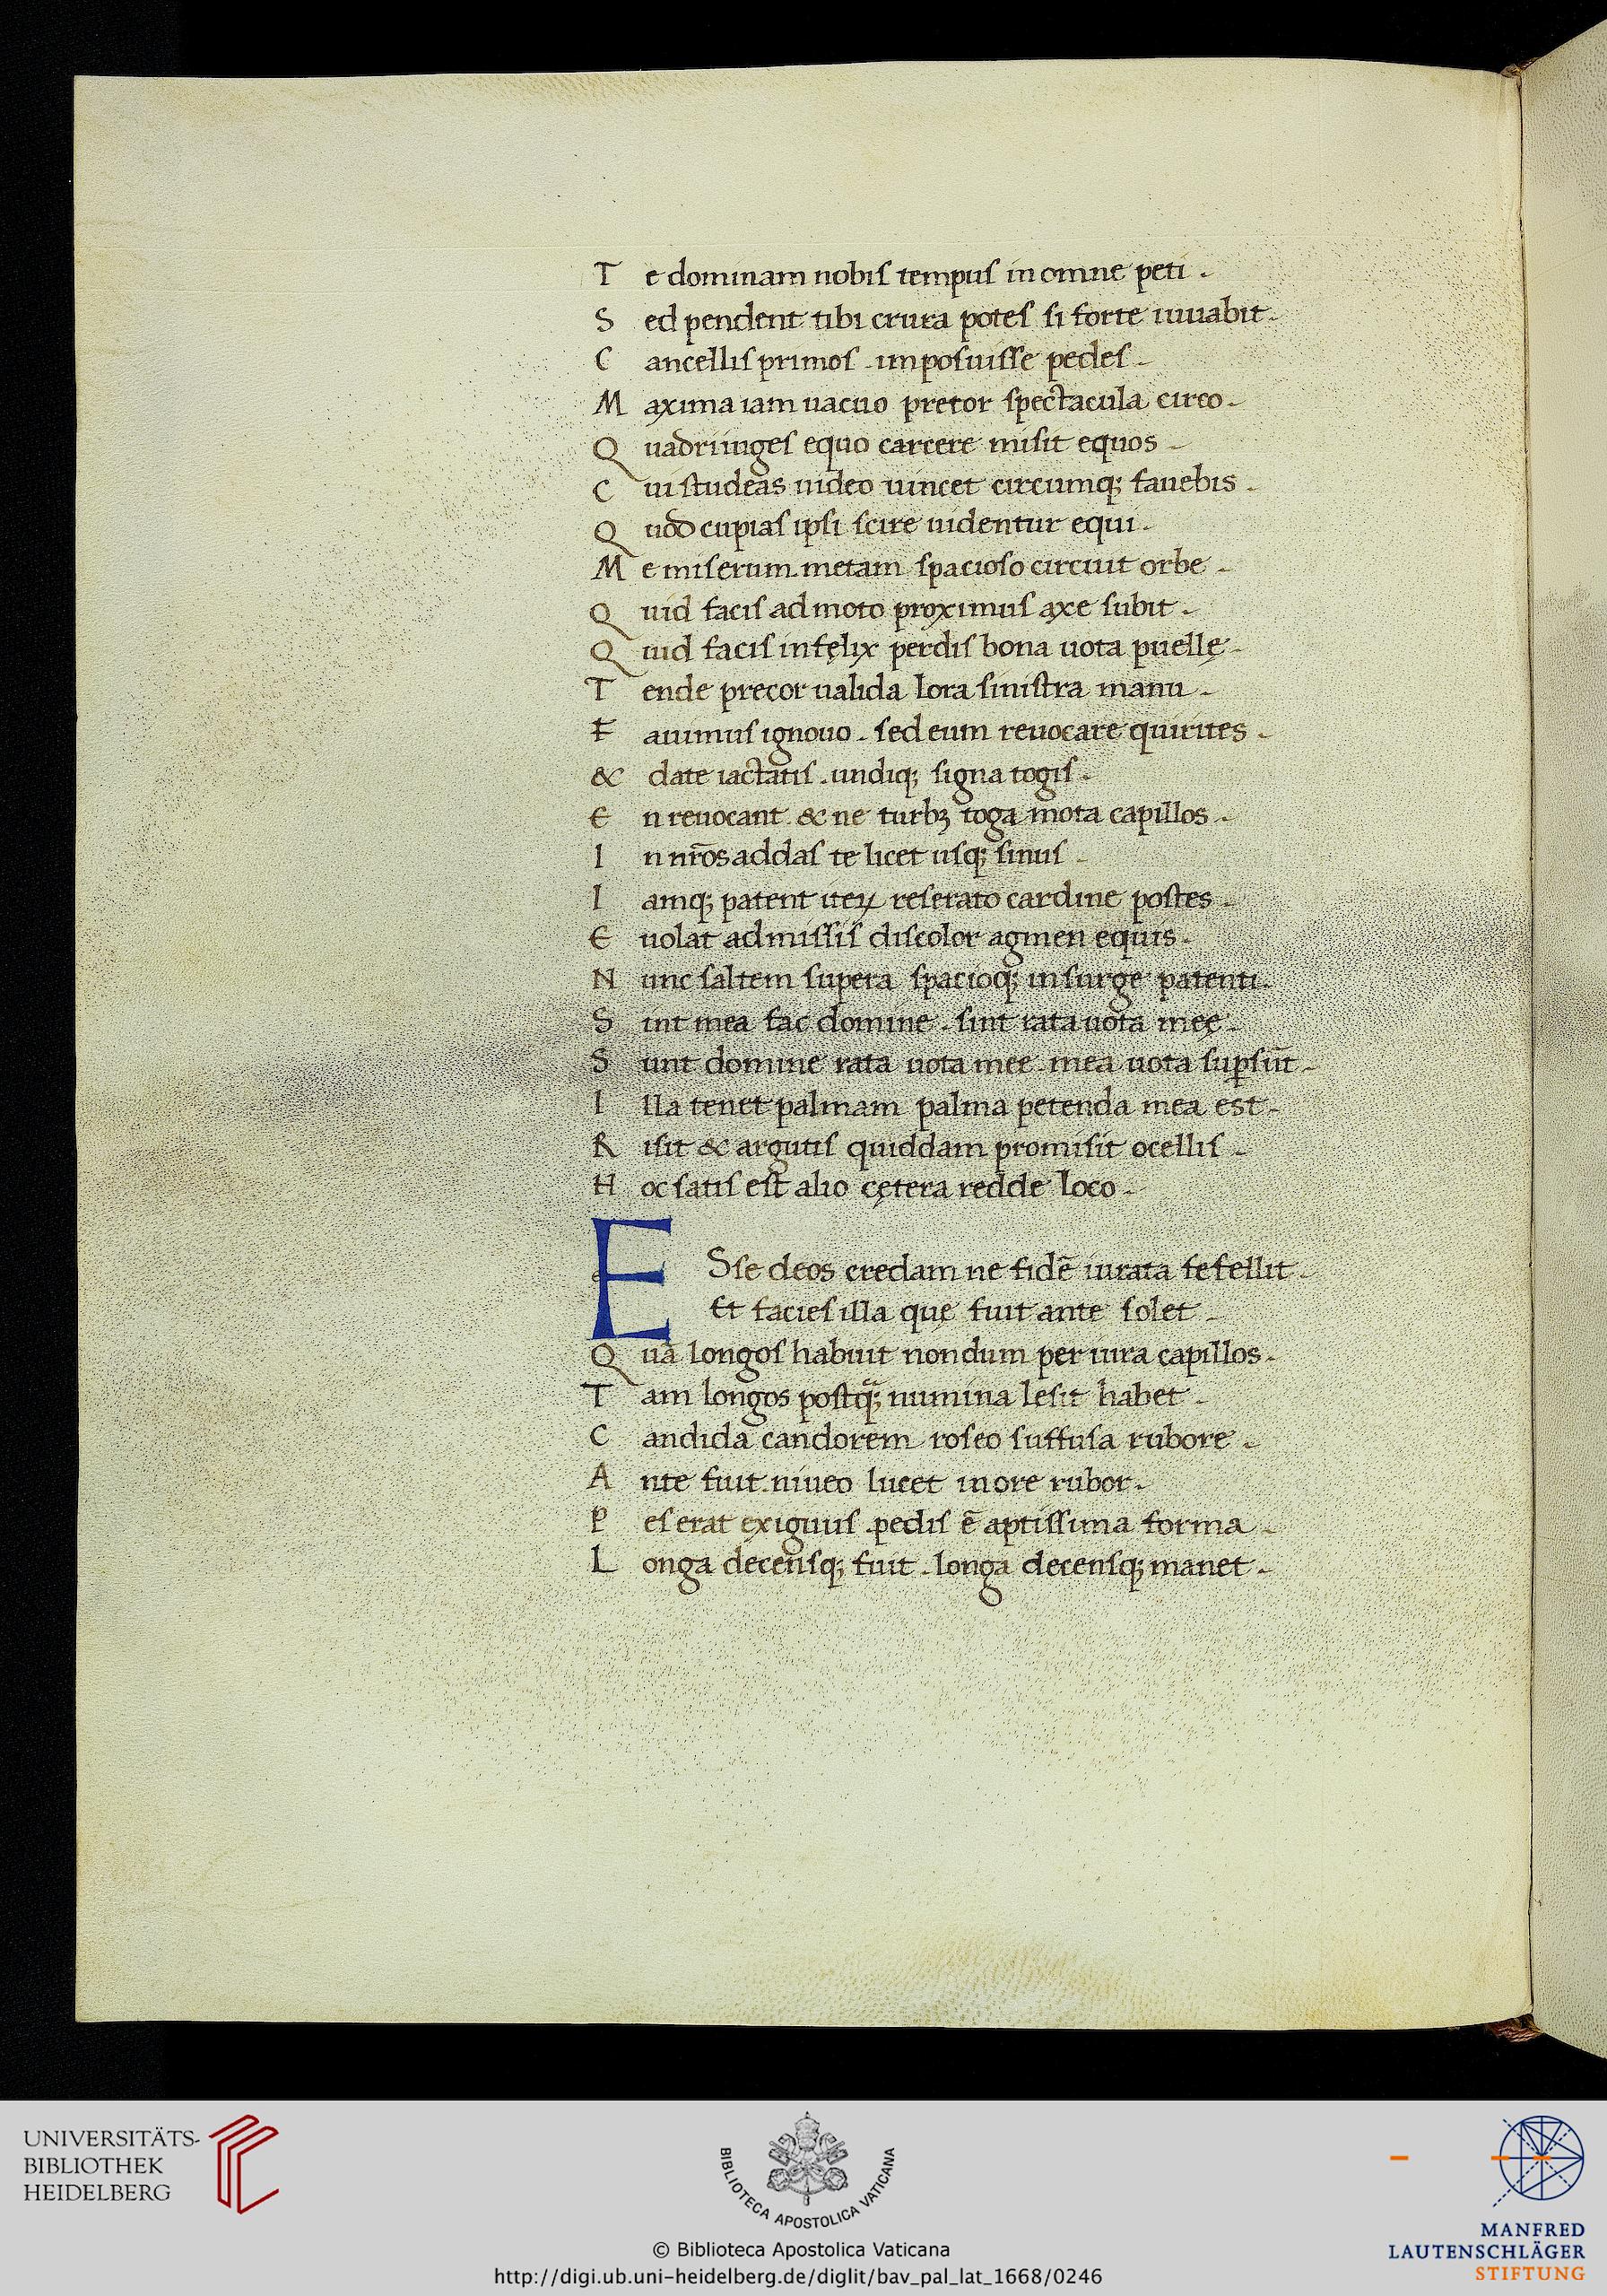 T e dominam nobis tempus in omne peti .
S ed pendent tibi crura potes si forte iuuabit .
C ancellis primos . imposuisse pedes .
M axima iam uacuo pretor spectacula circo .
Q uadriiuges equo carcere misit equos .
C ui studeas uideo uincet circumq; fauebis .
Q uod cupias ipsi scire uidentur equi .
M e miserum . metam spacioso circuit orbe .
Q uid facis ad moto proximus axe subit .
Q uid facis infęlix perdis bona uota puellę .
T ende precor ualida lora sinistra manu .
F auimus ignouo . sed eum reuocare quirites .
& date iactatis . undiq; signa togis .
E n reuocant . & ne turbꝫ toga mota capillos .
I n nr̄os addas te licet usq; sinus .
I amq; patent iteꝝ reserato cardine postes .
E uolat admissis discolor agmen equis .
N unc saltem supera spacioq; insurge patenti .
S int mea fac domine . sint rata uota meę .
S unt domine rata uota mee . mea uota suꝑsūt .
I lla tenet palmam palma petenda mea est .
R isit & argutis quiddam promisit ocellis .
H oc satis est alio cętera redde loco .
E Sse deos credam ne fidē iurata fefellit .
Et facies illa quę fuit ante solet .
Q uā longos habuit nondum per iura capillos .
T am longos postq̄; numina lesit habet .
C andida candorem roseo suffusa rubore .
A nte fuit . niueo lucet in ore rubor .
P es erat exiguus . pedis ē aptissima forma .
L onga decensq; fuit . longa decensq; manet .
UNIVERSITÄTS-
BIBLIOTHEK
HEIDELBERG
BIBLIOTECA APOSTOLICA VATICANA
© Biblioteca Apostolica Vaticana
http://digi.ub.uni-heidelberg.de/diglit/bav_pal_lat_1668/0246
MANFRED
LAUTENSCHLÄGER
STIFTUNG